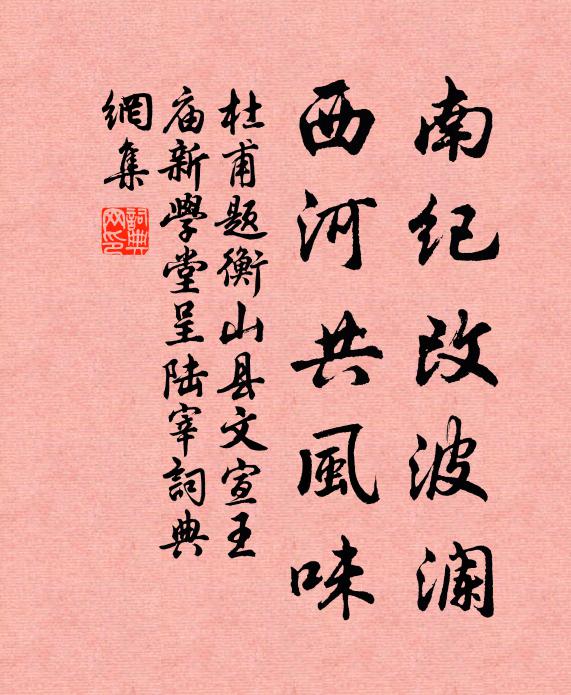 南纪改波澜
西河共風味
杜甫题衡山县文宣王
庙新學堂呈陆宰詞典
網集
詞典
网印